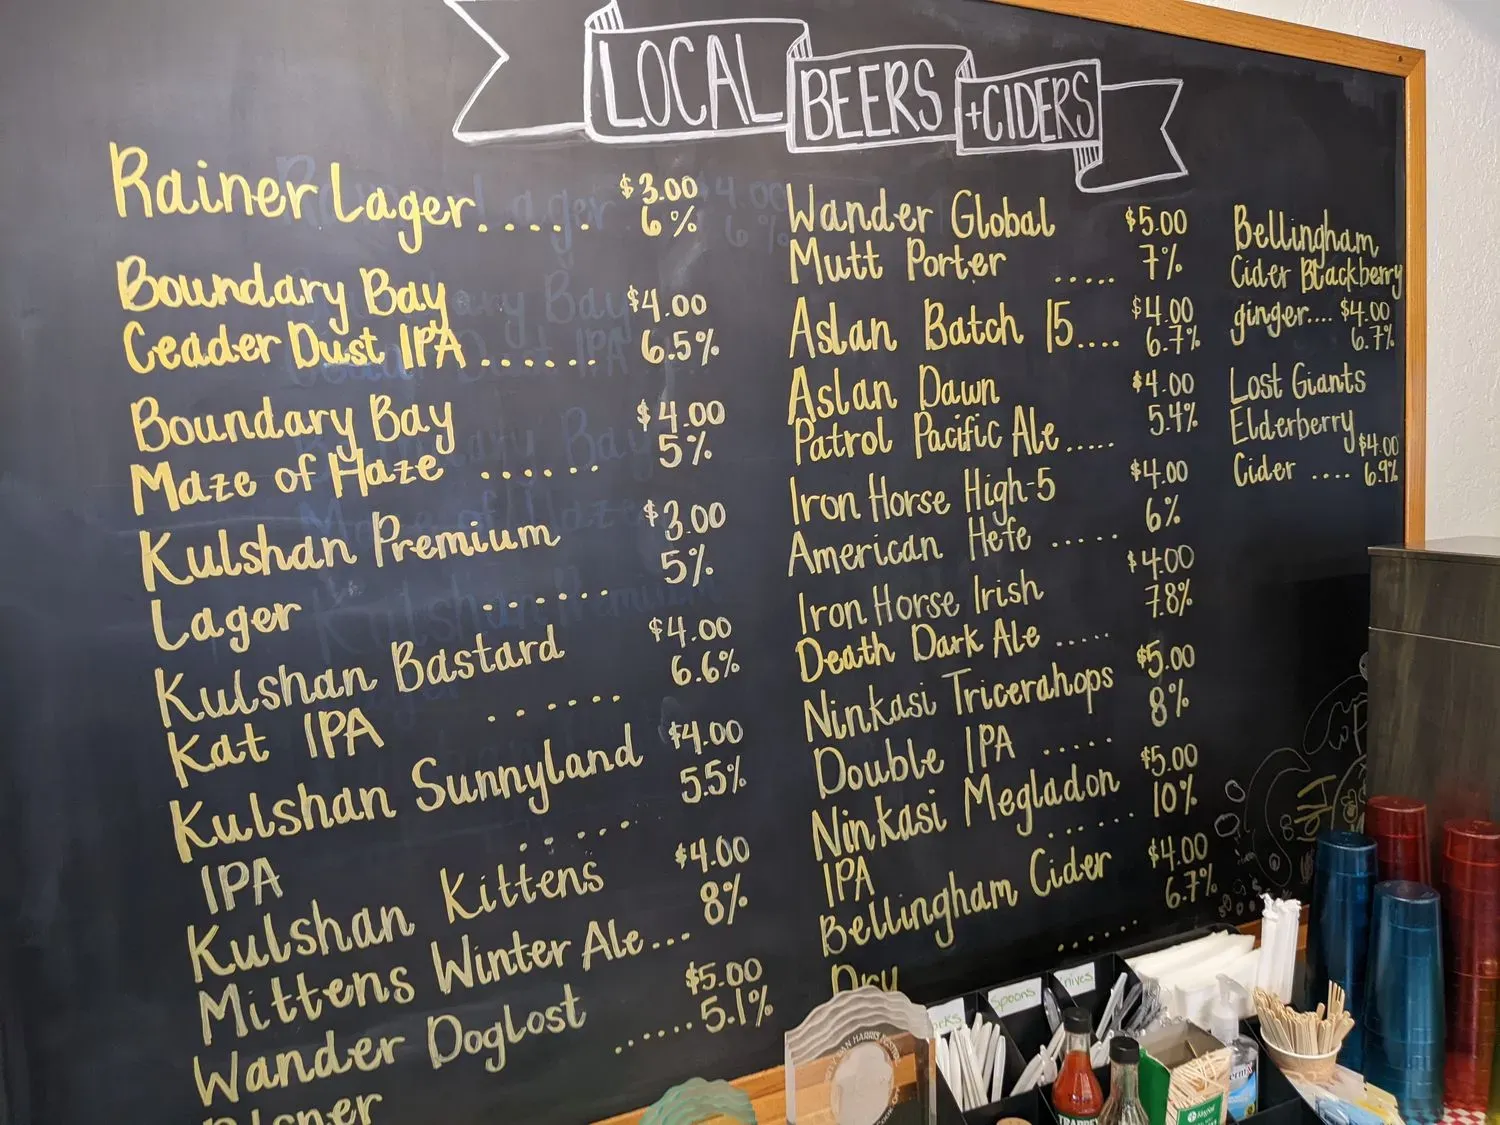 LOCAL BEERS +CIDERS
Rainer Lager...... $3.00
6%
Boundary Bay
Ceader Dust IPA...... $4.00
6.5%
Boundary Bay
Maze of Haze ...... $4.00
5%
Kulshan Premium
Lager ...... $3.00
5%
Kulshan Bastard
Kat IPA ...... $4.00
6.6%
Kulshan Sunnyland
IPA ...... $4.00
5.5%
Kulshan Kittens
Mittens Winter Ale... $4.00
8%
Wander Doglost
Pilsner ..... $5.00
5.1%
Wander Global
Mutt Porter ..... $5.00
7%
Aslan Batch 15.... $4.00
6.7%
Aslan Dawn
Patrol Pacific Ale..... $4.00
5.4%
Iron Horse High-5
American Hefe ..... $4.00
6%
Iron Horse Irish
Death Dark Ale ..... $4.00
7.8%
Ninkasi Tricerahops
Double IPA ..... $5.00
8%
Ninkasi Megladon
IPA ...... $5.00
10%
Bellingham Cider
Dry ...... $4.00
6.7%
Bellingham
Cider Blackberry
ginger.... $4.00
6.7%
Lost Giants
Elderberry
Cider .... $4.00
6.9%
Spoons